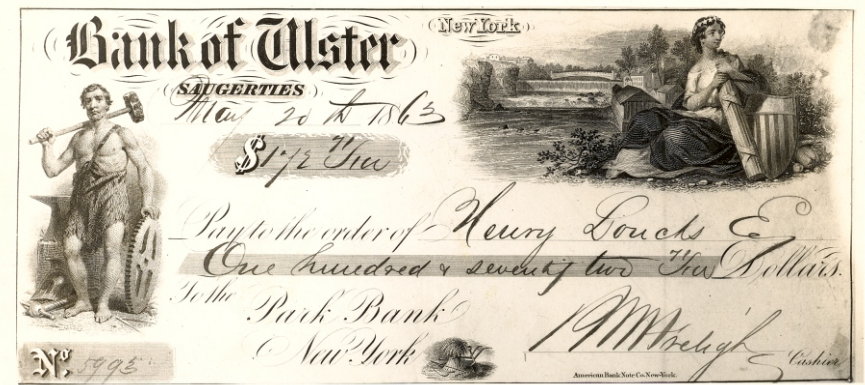 Bank of Ulster
New York
SAUGERTIES
May 20th 1863
$172 71/100
Pay to the order of Henry Loucks E
One hundred & seventy two 71/100 Dollars.
To the
Park Bank
New York
Cashier
No. 5993
American Bank Note Co. New-York.